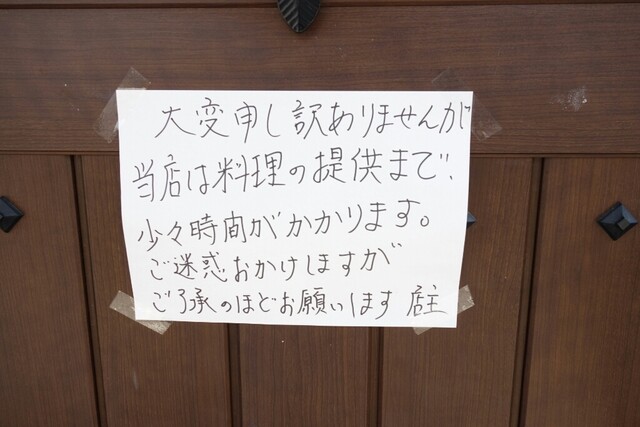 大変申し訳ありませんが
当店は料理の提供まで、
少々時間がかかります。
ご迷惑おかけしますが
ご了承のほどお願いします 店主